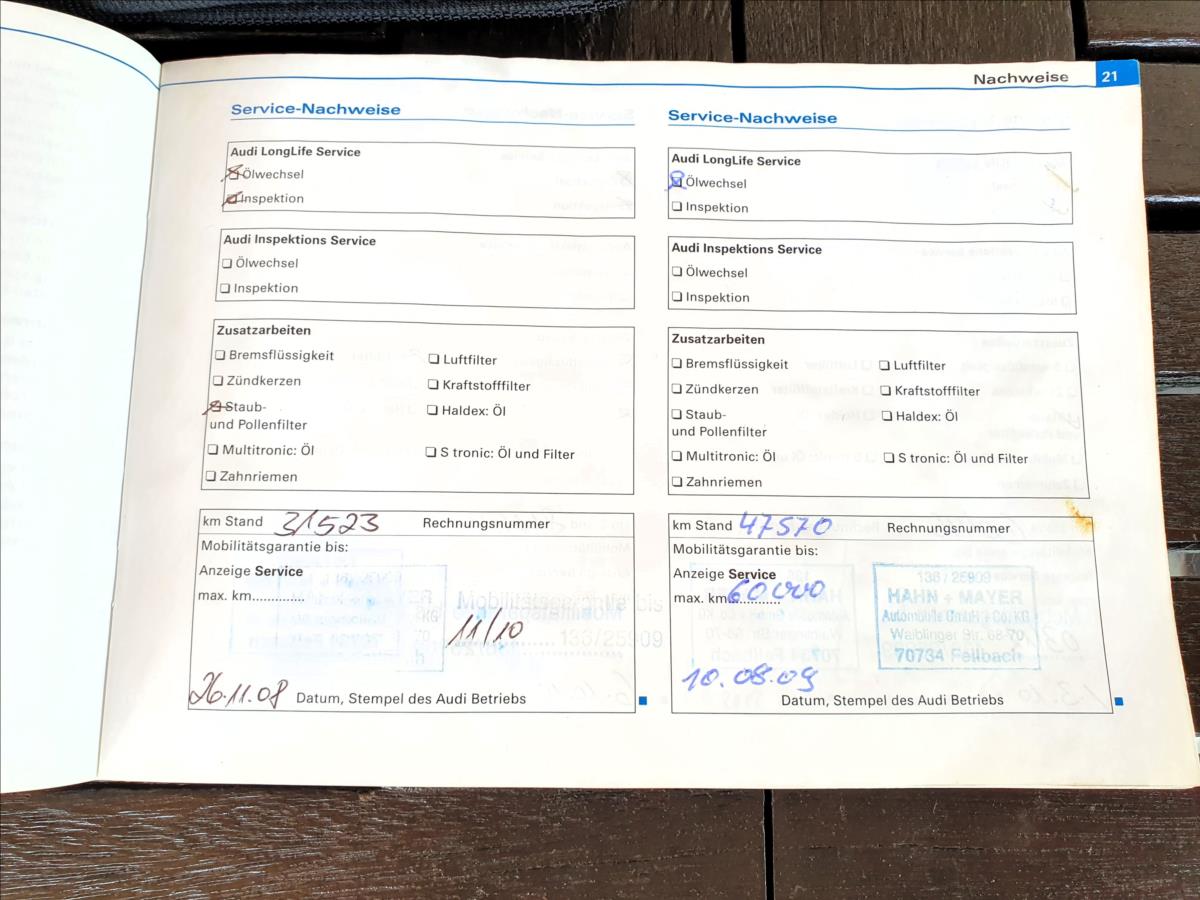 Nachweise 21
Service-Nachweise
Audi LongLife Service
Ölwechsel
Inspektion
Audi Inspektions Service
Ölwechsel
Inspektion
Zusatzarbeiten
Bremsflüssigkeit
Luftfilter
Zündkerzen
Kraftstofffilter
Staub-
und Pollenfilter
Haldex: Öl
Multitronic: Öl
S tronic: Öl und Filter
Zahnriemen
km Stand 31523 Rechnungsnummer
Mobilitätsgarantie bis:
Anzeige Service
max. km............
11/10
136/25909
26.11.08 Datum, Stempel des Audi Betriebs
Service-Nachweise
Audi LongLife Service
Ölwechsel
Inspektion
Audi Inspektions Service
Ölwechsel
Inspektion
Zusatzarbeiten
Bremsflüssigkeit
Luftfilter
Zündkerzen
Kraftstofffilter
Staub-
und Pollenfilter
Haldex: Öl
Multitronic: Öl
S tronic: Öl und Filter
Zahnriemen
km Stand 47570 Rechnungsnummer
Mobilitätsgarantie bis:
Anzeige Service
max. km 60000
136/25909
HAHN + MAYER
Automobile GmbH + Co. KG
Waiblinger Str. 68-70
70734 Fellbach
10.08.09
Datum, Stempel des Audi Betriebs